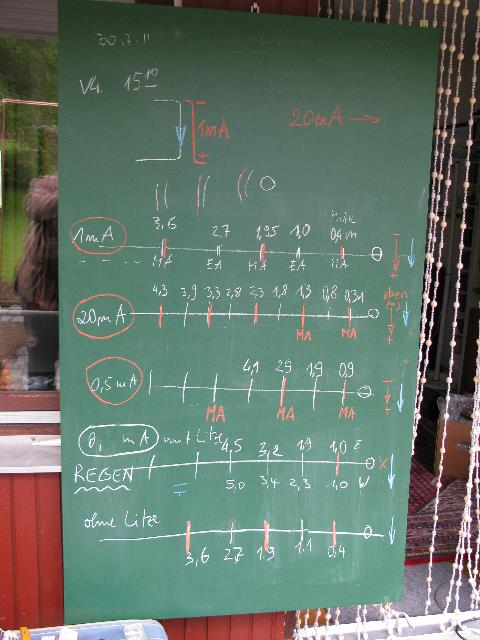 30.7.11
V4. 15 10
1mA
20mA →
- +
3,6 2,7 1,95 1,0 0,4 m
1mA
HA EA HA EA HA
4,3 3,9 3,3 2,8 2,3 1,8 1,3 0,8 0,31
20mA
oben
MA MA
4,1 2,9 1,9 0,9
0,5mA
MA MA MA
0, mA mit Litze
4,5 3,2 1,9 1,0 E
REGEN
= 5,0 3,4 2,3 1,0 W
ohne Litze
3,6 2,7 1,9 1,1 0,4